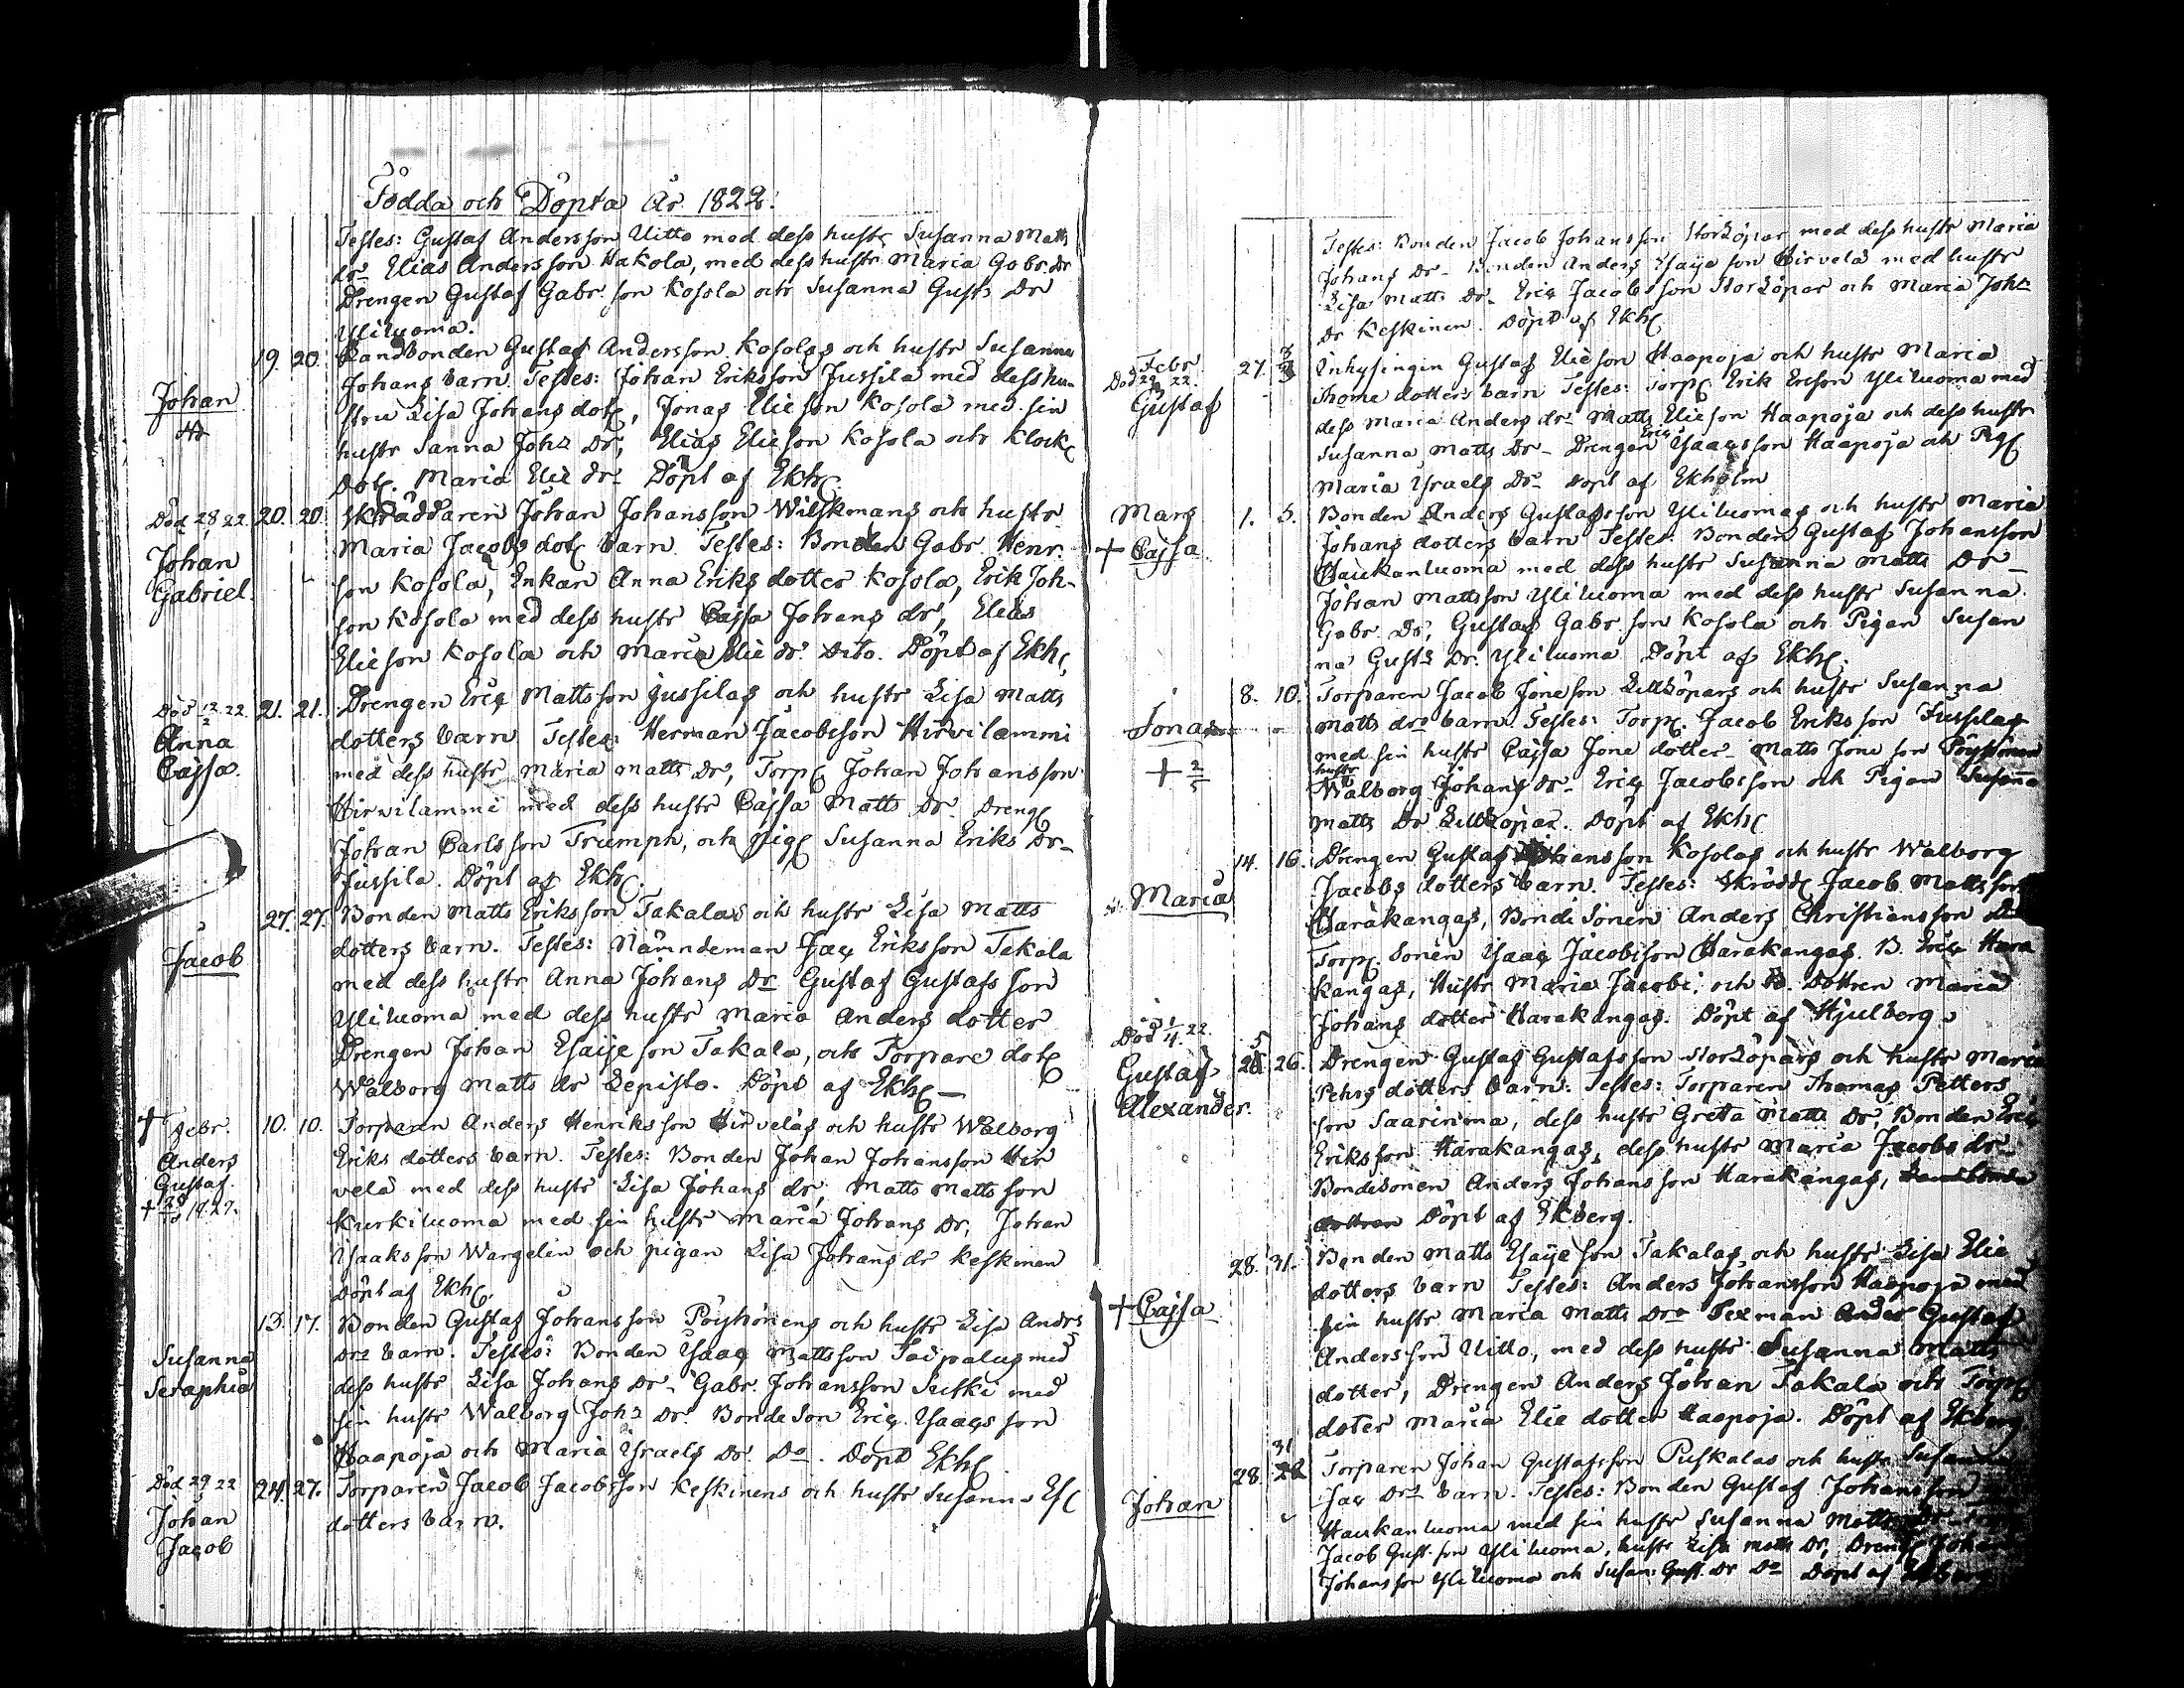 Födda och Döpta År 1822.
Testes: Gustaf Andersson Uitto med dess hustr Susanna Matts
dr. Elias Andersson Hakola, med dess hustr Maria Gabr. dr
Drengen Gustaf Gabr. son Kosola och Susanna Gusts Dr
Yliluoma.
19. 20. Landbonden Gustaf Andersson Kosolas och hustr Susanna
Johan
Johans barn. Testes: Johan Eriksson Jussila med dess hu-
stru Lisa Johans dotr, Jonas Elieson Kosola med sin
hustr Sanna Johs Dr, Elias Elieson Kosola och Klock
Dotr. Maria Elie Dr. Döpt af Ekh.
Död 28 22. 20. 20. Skräddaren Johan Johansson Wilskmans och hustr
Johan
Gabriel.
Maria Jacobs dotr barn. Testes: Bonden Gabr Henr.
son Kosola, Enkan Anna Eriks dotter Kosola, Erik Joh-
son Kosola med dess hustr Cajsa Johans dr, Elias
Elieson Kosola och Maria Elie dr. Dito. Döpt af Ekh.
Död 12/2 22. 21. 21. Drengen Eriq Mattsson Jussilas och hustr Lisa Matts
Anna
Cajsa.
dotters barn Testes: Herman Jacobsson Hirvilammi
med dess hustr Maria Matts Dr, Torp. Johan Johansson
Hirvilammi med dess hustr Cajsa Matts Dr. Dreng
Johan Carlsson Trumph, och pig. Susanna Eriks Dr-
Jussila. Döpt af Ekh.
27. 27. Bonden Matts Eriksson Takalas och hustr Lisa Matts
Jacob
dotters barn. Testes: Nämndeman Isaq Eriksson Takala
med dess hustr Anna Johans Dr Gustaf Gustafsson
Yliluoma med dess hustr Maria Anders dotter
Drengen Johan Esaije son Takala, och Torpare dotr
Walborg Matts dr Lepisto. Döpt af Ekh. —
+ Febr. 10. 10. Torparen Anders Henriksson Hirvelas och hustr Walborg
Anders
Gustaf
Eriks dotters barn. Testes: Bonden Johan Johansson Hir
vela med dess hustr Lisa Johans dr, Matts Mattsson
Kurkiluoma med sin hustr Maria Johans Dr, Johan
Ysaaksson Wargelin och pigan Lisa Johans dr Keskinen
Döpt af Ekh.
13. 17. Bonden Gustaf Johansson Pöyhönens och hustr Lisa Andrs
Susanna
Seraphia
Drs barn. Testes: Bonden Ysaaq Mattsson Taipalus med
dess hustr Lisa Johans Dr- Gabr. Johansson Sutki med
sin hustr Walborg Johs Dr. Bonde Son Eriq Ysaaqsson
Haapoja och Maria Ysraels Dr. Do. Döpt Ekh.
Död 29 22 24. 27. Torparen Jacob Jacobsson Keskinens och hustr Susanna
Johan
Jacob
dotters barn.
Testes: Bonden Jacob Johansson Storköpar med dess hustr Maria
Johans Dr- Bonden Anders Esaije son Hirvela med hustr
Lisa Matts Dr- Eriq Jacobsson Storköpar och Maria Johs
Dr Keskinen. Döpt af Ekh.
Febr 27. 3 Inhysingin Gustaf Elieson Haapoja och hustr Maria
Gustaf
Thome dotters barn Testes: Torp. Erik Ericson Yliluoma med
dess Maria Anders dr- Matts Elieson Haapoja och dess hustr
Susanna Matts Dr- Drengen Eriq Ysaaqsson Haapoja och Pig.
Maria Ysraels Dr- Döpt af Ekholm
Mars 1. 3. Bonden Anders Gustafsson Yliluomas och hustr Maria
+ Cajsa
Johans dotters barn Testes: Bonden Gustaf Johansson
Haukanluoma med dess hustr Susanna Matts Dr-
Johan Mattsson Yliluoma med dess hustr Susanna
Gabr Dr, Gustaf Gabr. son Kosola och Pigan Susan
na Gusts Dr. Yliluoma Döpt af Ekh.
8. 10. Torparen Jacob Joneson Littköpars och hustr Susanna
Jonas
+ 2/5
Matts drs barn. Testes: Torp. Jacob Eriksson Jussilas
med sin hustr Cajsa Jone dotter- Matts Jone son Pöyhönen
hustr
Walborg Johans dr- Eriq Jacobsson och Pigan Susanna
Matts Dr Littköpar. Döpt af Ekh.
14. 16. Drengen Gustaf Johansson Kosolas och hustr Walborg
Maria
Jacobs dotters barn. Testes: Skrädd. Jacob Mattsson
Harakangas, Bonde Sonen Anders Christiansson
Torp. Sonen Ysaaq Jacobsson Harakangas. B. Eriq Hara
kangas, Hustr Maria Jacobi, och B. Dottren Maria
Johans dotter Harakangas. Döpt af Hjulberg.
Död 1/4 22. 25 26. Drengen Gustaf Gustafsson Storköpars och hustr Maria
Gustaf
Alexander.
Pehrs dotters barn. Testes: Torparen Thomas Petters
son Saarinima, dess hustr Gretta Matts Dr, Bonden Eriq
Eriksson Harakangas, dess hustr Maria Jacobs dr-
Bondesonen Anders Johansson Harakangas,
dottren Döpt af Ekberg.
28. 31. Bonden Matts Esaije son Takalas, och hustr Lisa Elie
+ Cajsa
dotters barn Testes: Anders Johansson Haapoja med
sin hustr Maria Matts Dr- Sexman Gustaf
Andersson Uitto, med dess hustr Susanna Matts
dotter, Drengen Anders Johan Takala och Torp.
doter Maria Elie dotter Haapoja. Döpt af Ekberg.
28. 31 Torparen Johan Gustafsson Puskalas och hustr Susanna
Johan
Isaq Drs barn. Testes: Bonden Gustaf Johansson
Haukanluoma med sin hustr Susanna Matts Dr-
Jacob Gust. son Yliluoma, hustr Lisa Matts Dr, Dreng Johan
Johansson Yliluoma och Susan: Gust. Dr Do Döpt af Ekberg